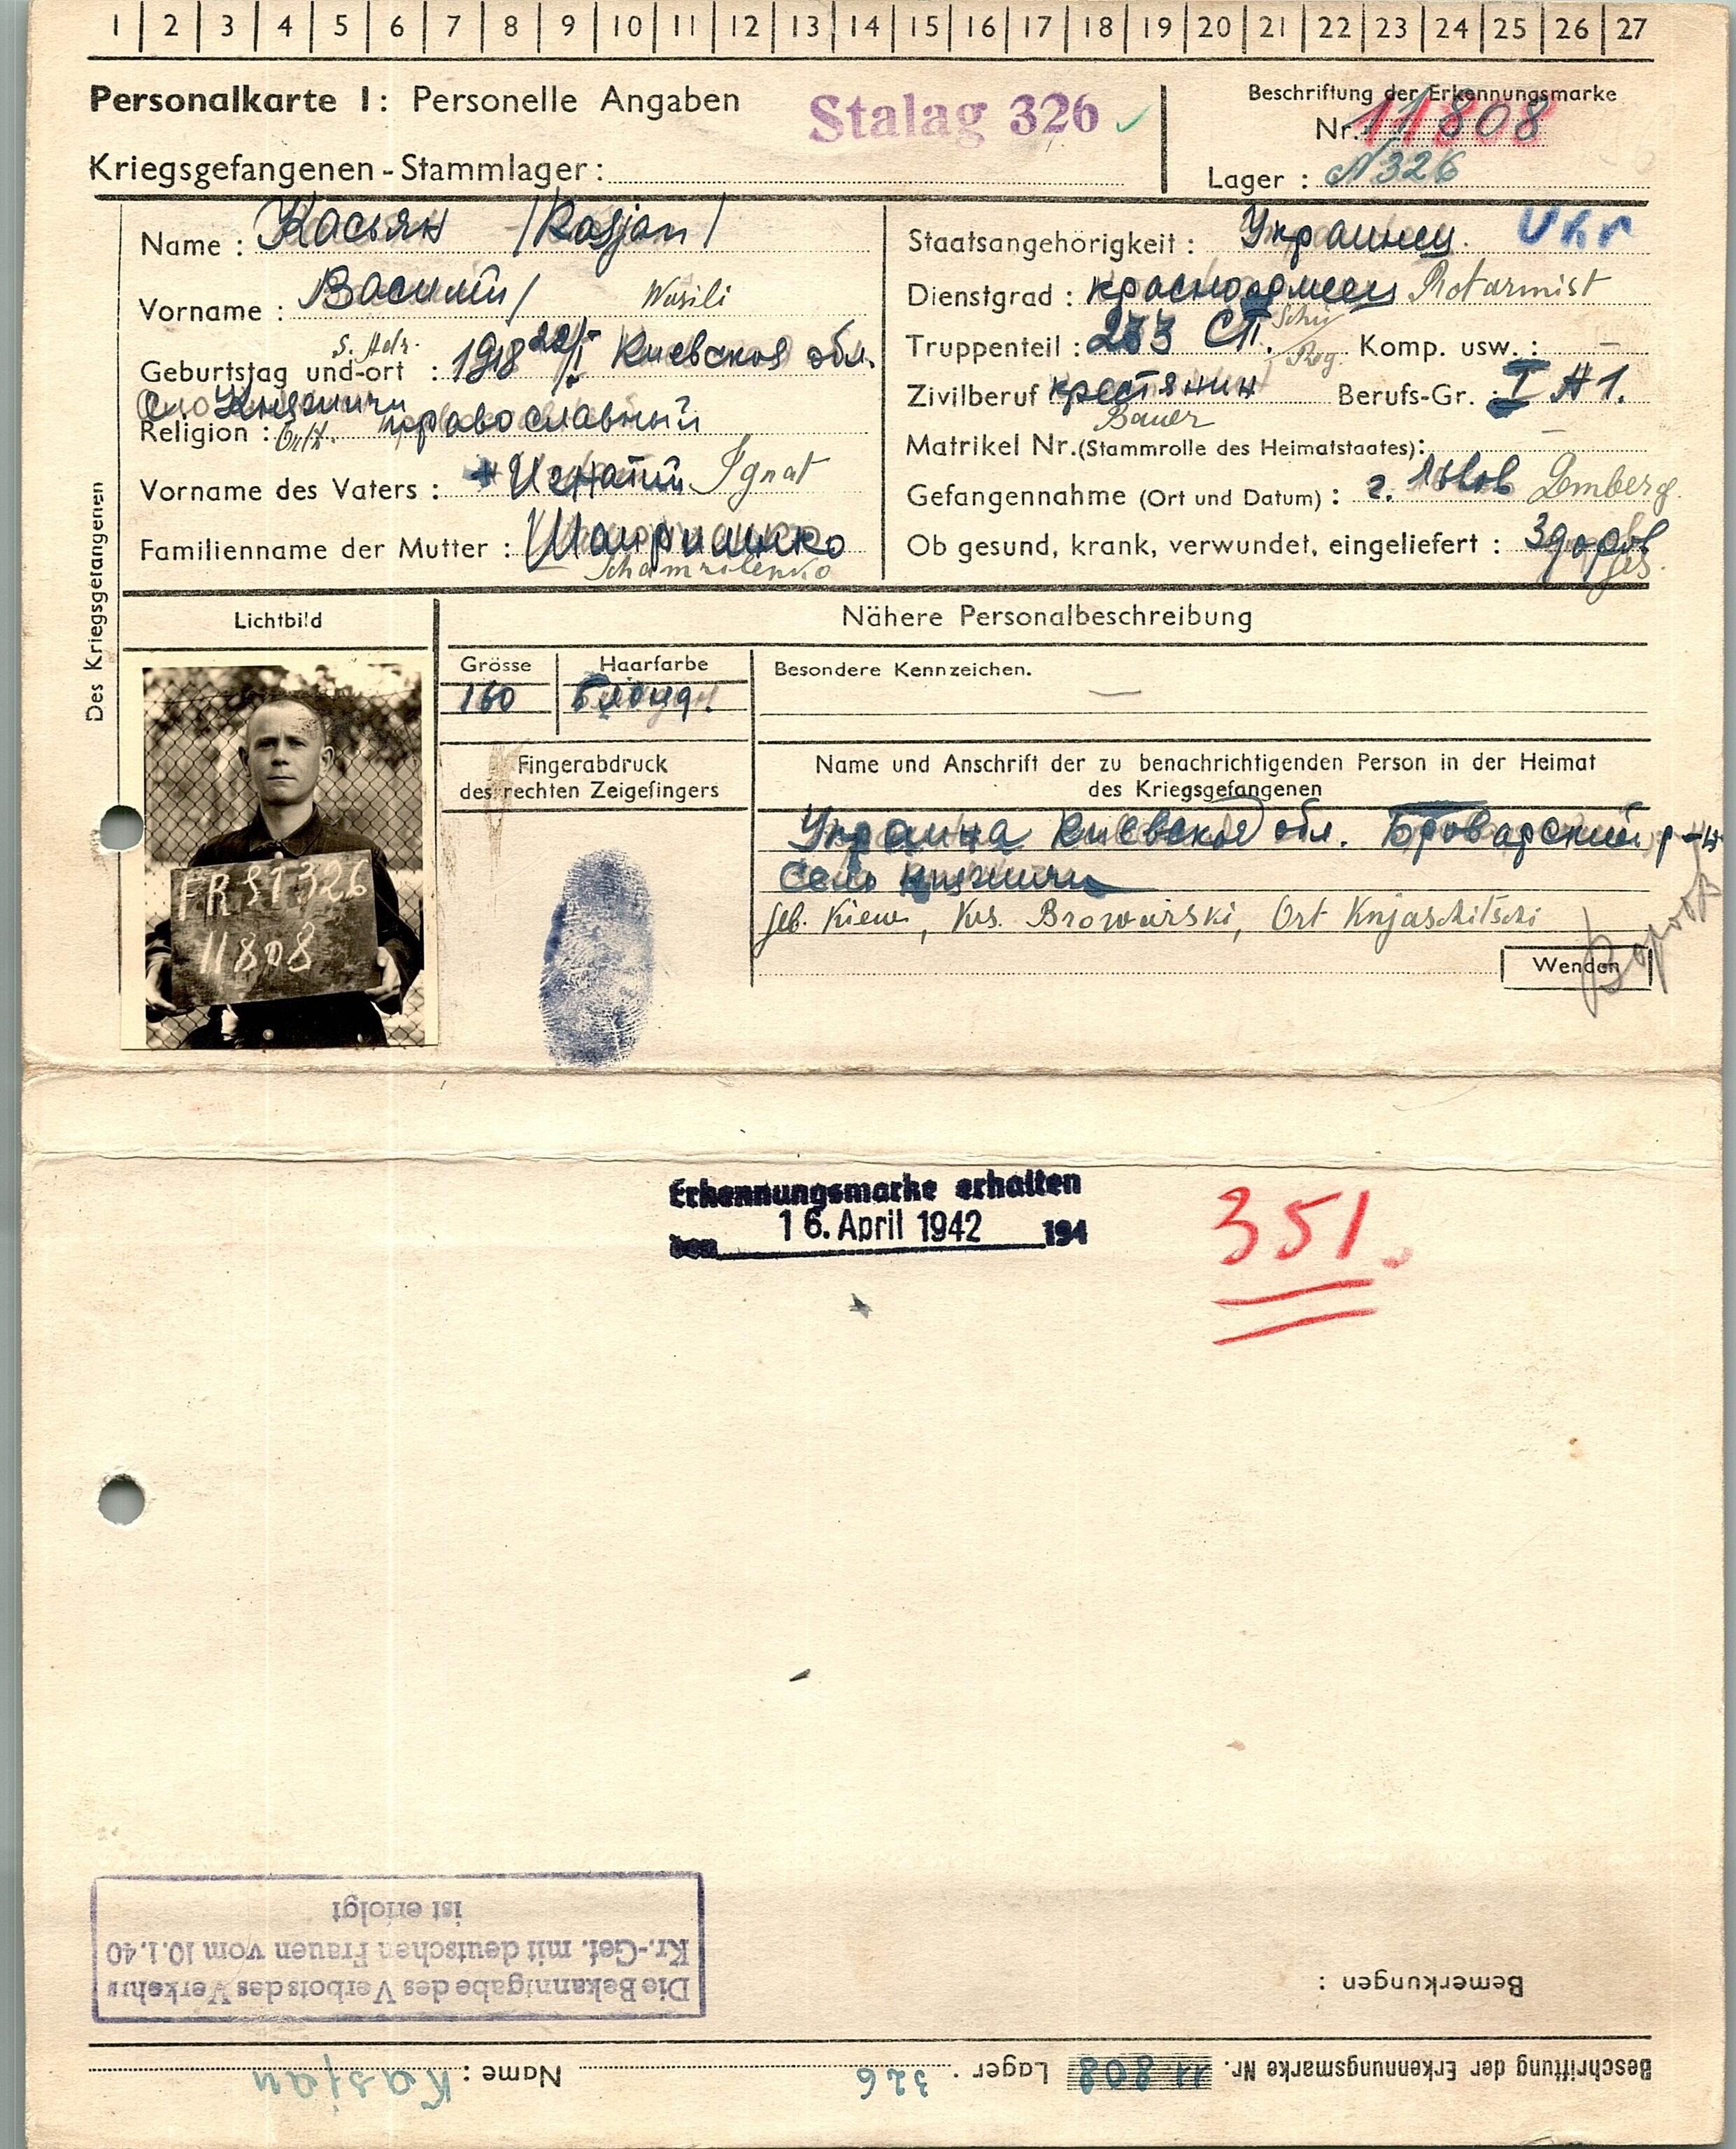 1 2 3 4 5 6 7 8 9 10 11 12 13 14 15 16 17 18 19 20 21 22 23 24 25 26 27
Personalkarte I: Personelle Angaben
Stalag 326
Beschriftung der Erkennungsmarke
Nr. 11808
Kriegsgefangenen-Stammlager:
Lager: N 326
Des Kriegsgefangenen
Name: Касьян /Kasjan/
Vorname: Василий/ Wasili
s. Adr.
Geburtstag und-ort: 1918 22/I Киевская обл.
с. Княжичи
Religion: Orth. православный
Vorname des Vaters: + Игнатий Ignat
Familienname der Mutter:
Staatsangehörigkeit: Украинец. Ukr
Dienstgrad: красноармеец Rotarmist
Truppenteil: 233 СП. Komp. usw.: –
Zivilberuf крестянин Berufs-Gr.: I A 1.
Bauer
Matrikel Nr. (Stammrolle des Heimatstaates): –
Gefangennahme (Ort und Datum): г. Львов Lemberg
Ob gesund, krank, verwundet, eingeliefert: Здоров
ges.
Lichtbild
Nähere Personalbeschreibung
Grösse
160
Haarfarbe
Блонд.
Besondere Kennzeichen.
—
Fingerabdruck
des rechten Zeigefingers
Name und Anschrift der zu benachrichtigenden Person in der Heimat
des Kriegsgefangenen
Украина Киевская обл. Броварский р-н
Село Княжичи
Geb. Kiew, Krs. Browarski, Ort Knjaschitschi
Wenden
11808
Erkennungsmarke erhalten
den 16. April 1942 194
351.
Die Bekanntgabe des Verbots des Verkehrs
Kr.-Gef. mit deutschen Frauen vom 10.1.40
ist erfolgt
Bemerkungen:
Beschriftung der Erkennungsmarke Nr. 11808 Lager. 326 Name: Kasjan